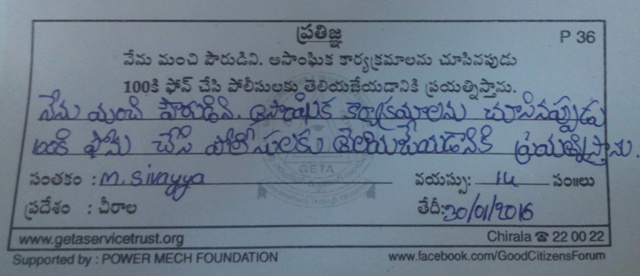 ప్రతిజ్ఞ P 36
నేను మంచి పౌరుడిని. అసాంఘిక కార్యక్రమాలను చూసినపుడు
100కి ఫోన్ చేసి పోలీసులకు తెలియజేయడానికి ప్రయత్నిస్తాను.
నేను మంచి పౌరుడిని. అసాంఘిక కార్యక్రమాలను చూసినప్పుడు
100కి ఫోను చేసి పోలీసులకు తెలియజేయడానికి ప్రయత్నిస్తాను.
GETA
సంతకం : M. Sivayya వయస్సు: 14 సం॥లు
ప్రదేశం : చీరాల తేదీ: 30/01/2016
www.getaservicetrust.org Chirala ☎ 22 00 22
Supported by : POWER MECH FOUNDATION www.facebook.com/GoodCitizensForum